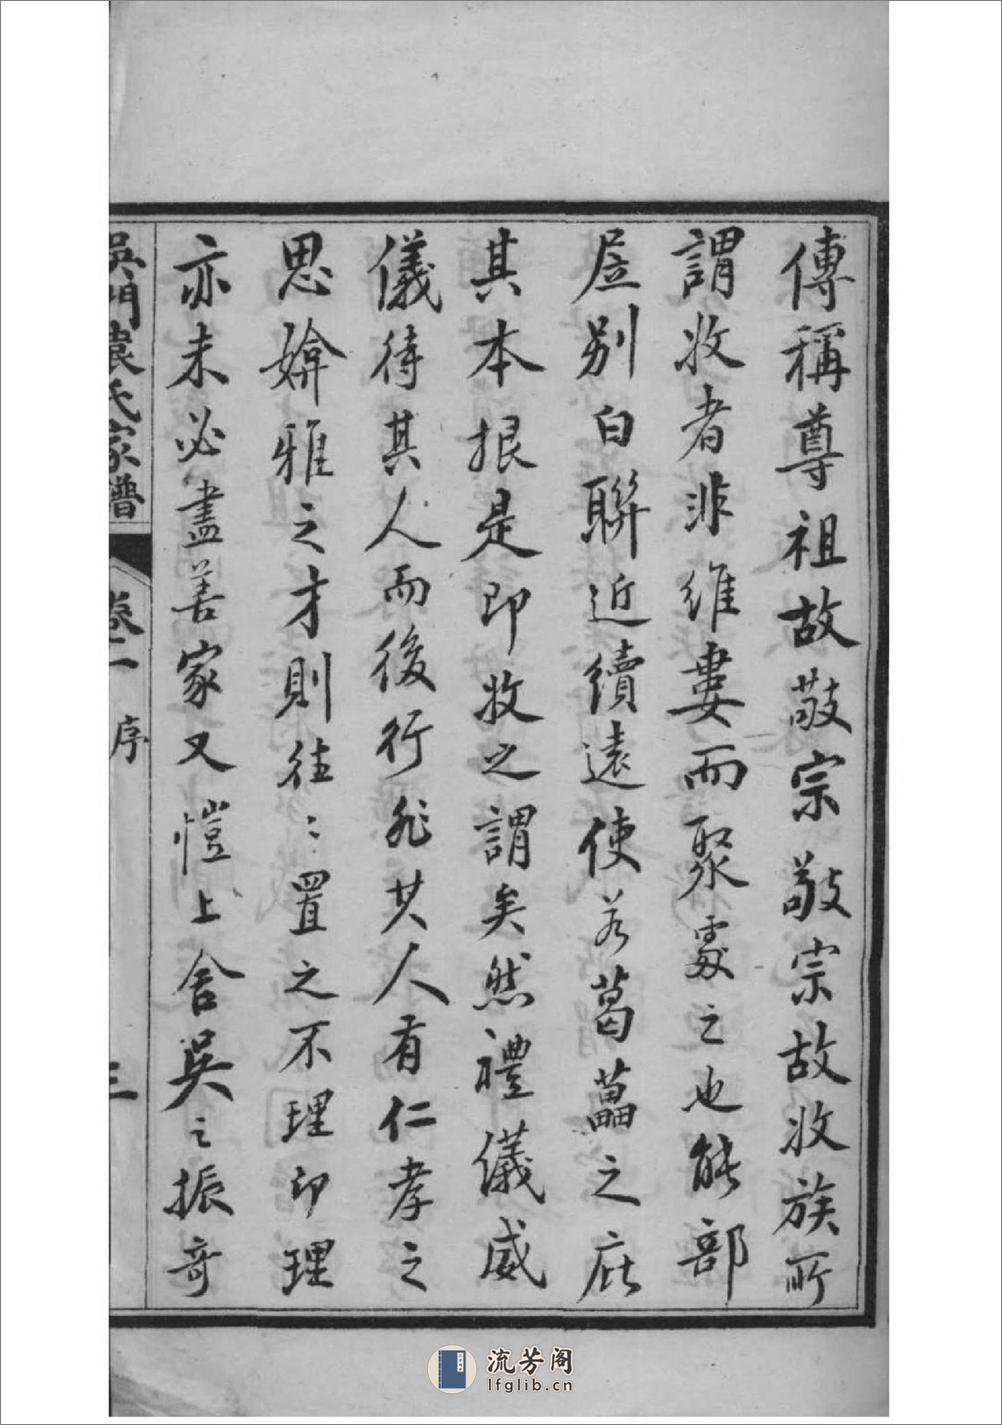 傳稱尊祖故敬宗敬宗故收族所
謂收者非維婁而聚處之也能部
居別白聯近續遠使若葛藟之庇
其本根是即收之謂矣然禮儀威
儀待其人而後行非其人有仁孝之
思媕雅之才則往〻置之不理即理
亦未必盡善家又愷上舍吳之振奇
吳門袁氏家譜
卷二 序
三
流芳阁
lfglib.cn